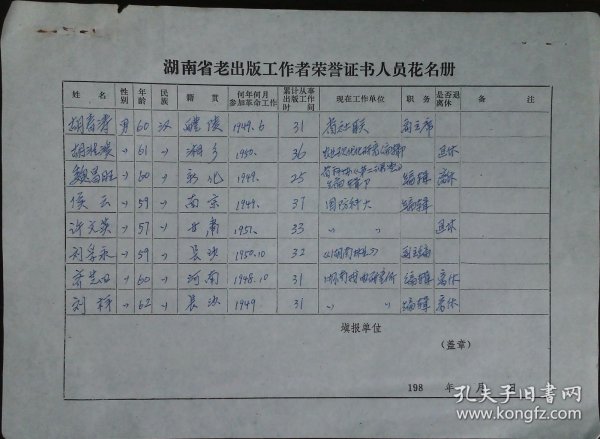 湖南省老出版工作者荣誉证书人员花名册
姓名 性别 年龄 民族 籍贯 何年何月参加革命工作 累计从事出版工作时间 现在工作单位 职务 是否退离休 备注
男 60 汉 醴陵 1949.6 31 省社联 副主席
〃 61 〃 湘乡 1950. 36 退休
魏昌旺 〃 60 〃 新化 1949. 25 编辑 离休
侯云 〃 59 〃 南京 1949. 37 国防科大 编辑
许文英 〃 57 〃 甘肃 1951. 33 〃 〃 退休
刘孚永 〃 59 〃 长沙 1950.10 32 副主编
〃 60 〃 河南 1948.10 31 编辑 离休
刘 〃 62 〃 长沙 1949 31 〃 〃 编辑 离休
填报单位
(盖章)
198 年 月 日
孔夫子旧书网
www.kongfz.com